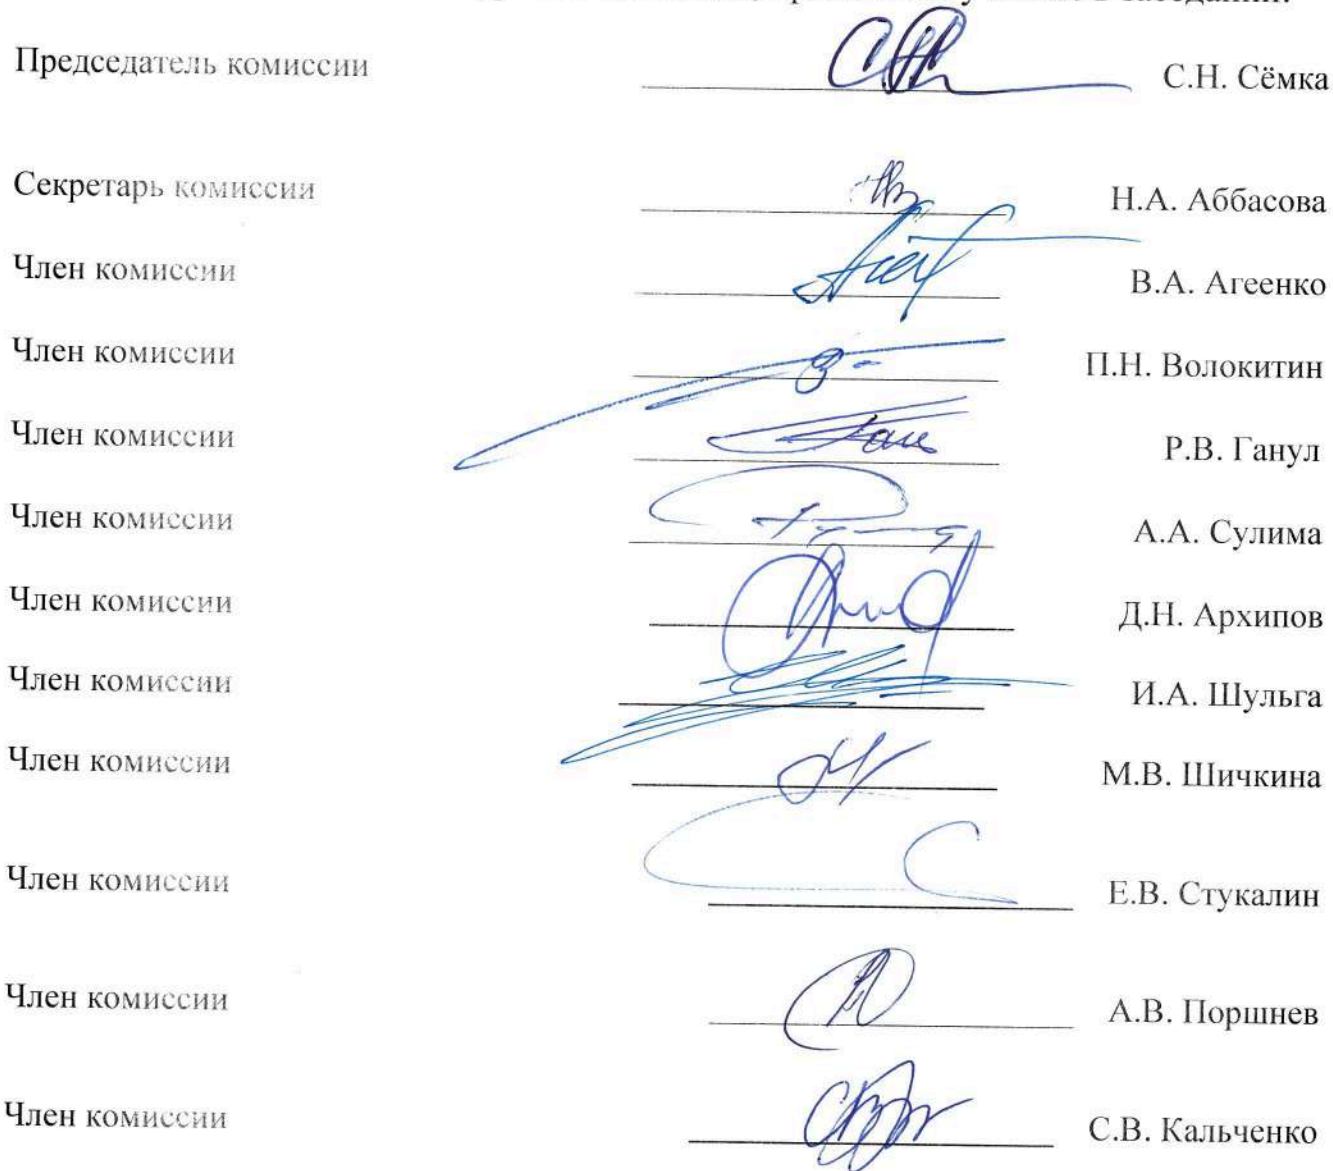 заседании.
Председатель комиссии С.Н. Сёмка
Секретарь комиссии Н.А. Аббасова
Член комиссии В.А. Агеенко
Член комиссии П.Н. Волокитин
Член комиссии Р.В. Ганул
Член комиссии А.А. Сулима
Член комиссии Д.Н. Архипов
Член комиссии И.А. Шульга
Член комиссии М.В. Шичкина
Член комиссии Е.В. Стукалин
Член комиссии А.В. Поршнев
Член комиссии С.В. Кальченко